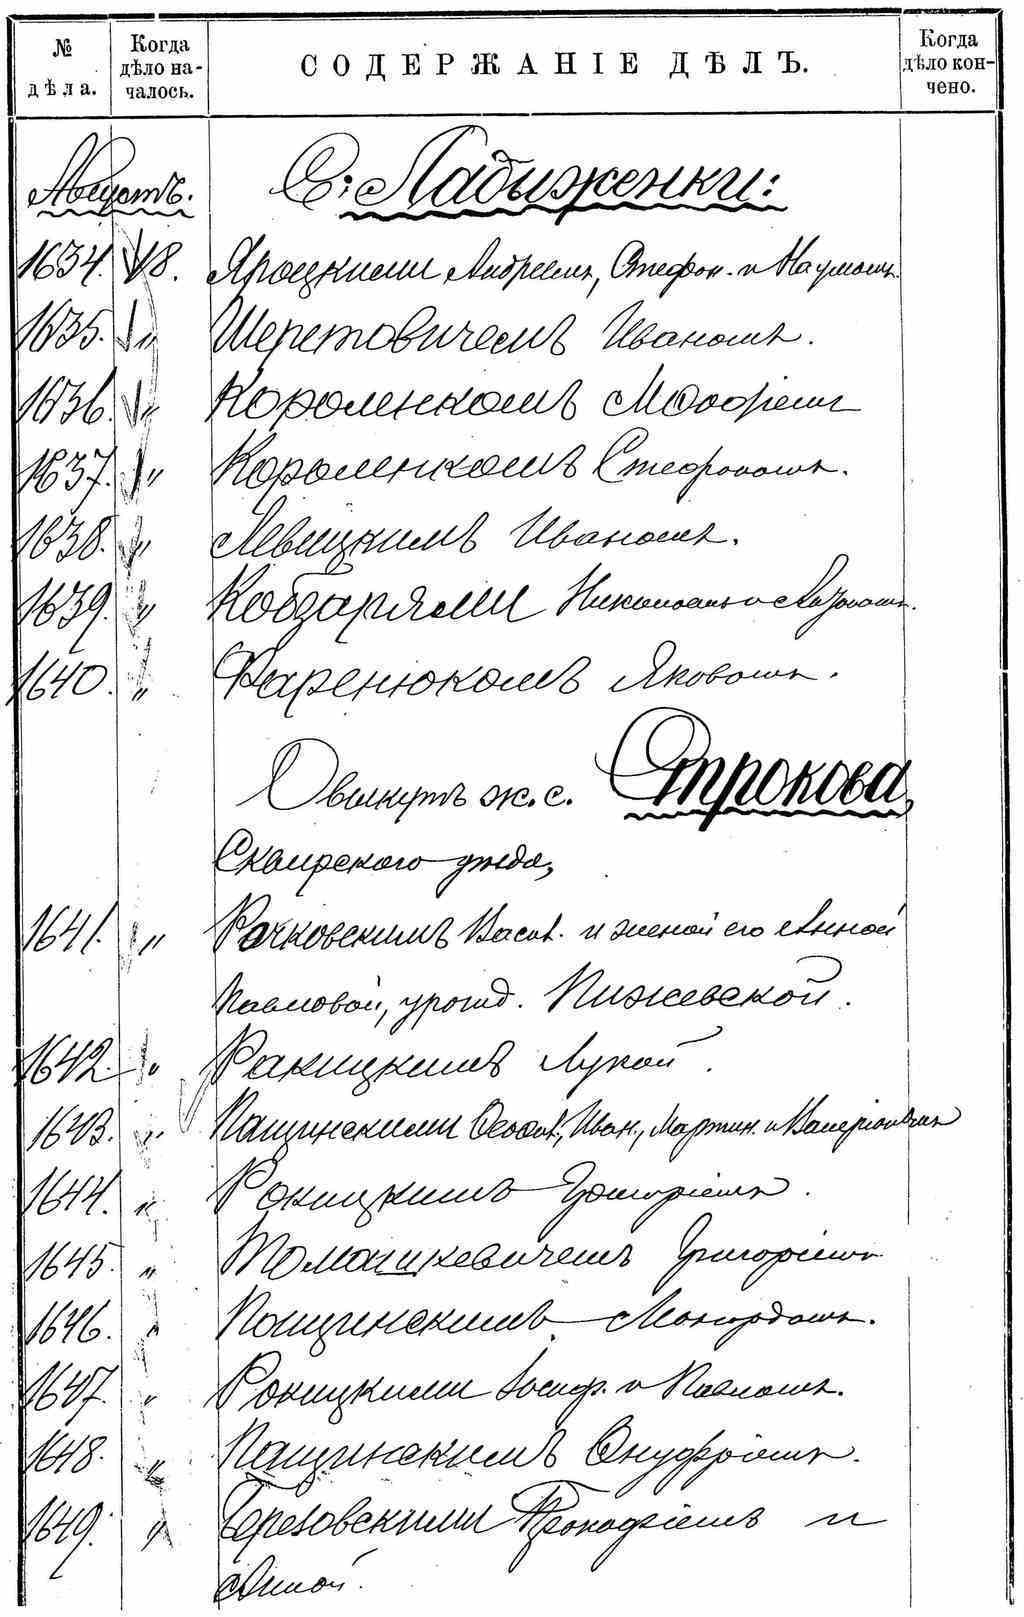 № дѣла. Когда дѣло началось. СОДЕРЖАНІЕ ДѢЛЪ. Когда дѣло кончено.
Августъ. С: Ладыженки:
1634. 18. Яроцкими Андреемъ, Стефан. и Наумомъ
1635. " Шеретовичемъ Иваномъ.
1636. " Короленкомъ
1637. " Короленкомъ Стефаномъ.
1638. " Левицкимъ Иваномъ.
1639. " Кобзарями Николаемъ и
1640. " Фаренюкомъ Яковомъ.
ж. с. Строкова,
Сквирского уѣзда,
1641. " Рачковскимъ Васил. и женой его Анной
Павловой, урожд. Пижевской.
1642. " Ракицкимъ Лукой.
1643. " Пащинскими Иван., Мартин. и
1644. " Ракицкимъ Григоріемъ.
1645. " Томашкевичемъ Григоріемъ
1646. " Пащинскимъ
1647. " Ракицкими Іосиф. и Павломъ.
1648. " Пащинскимъ Онуфріемъ.
1649. " Березовскими Прокофіемъ и
Анной.